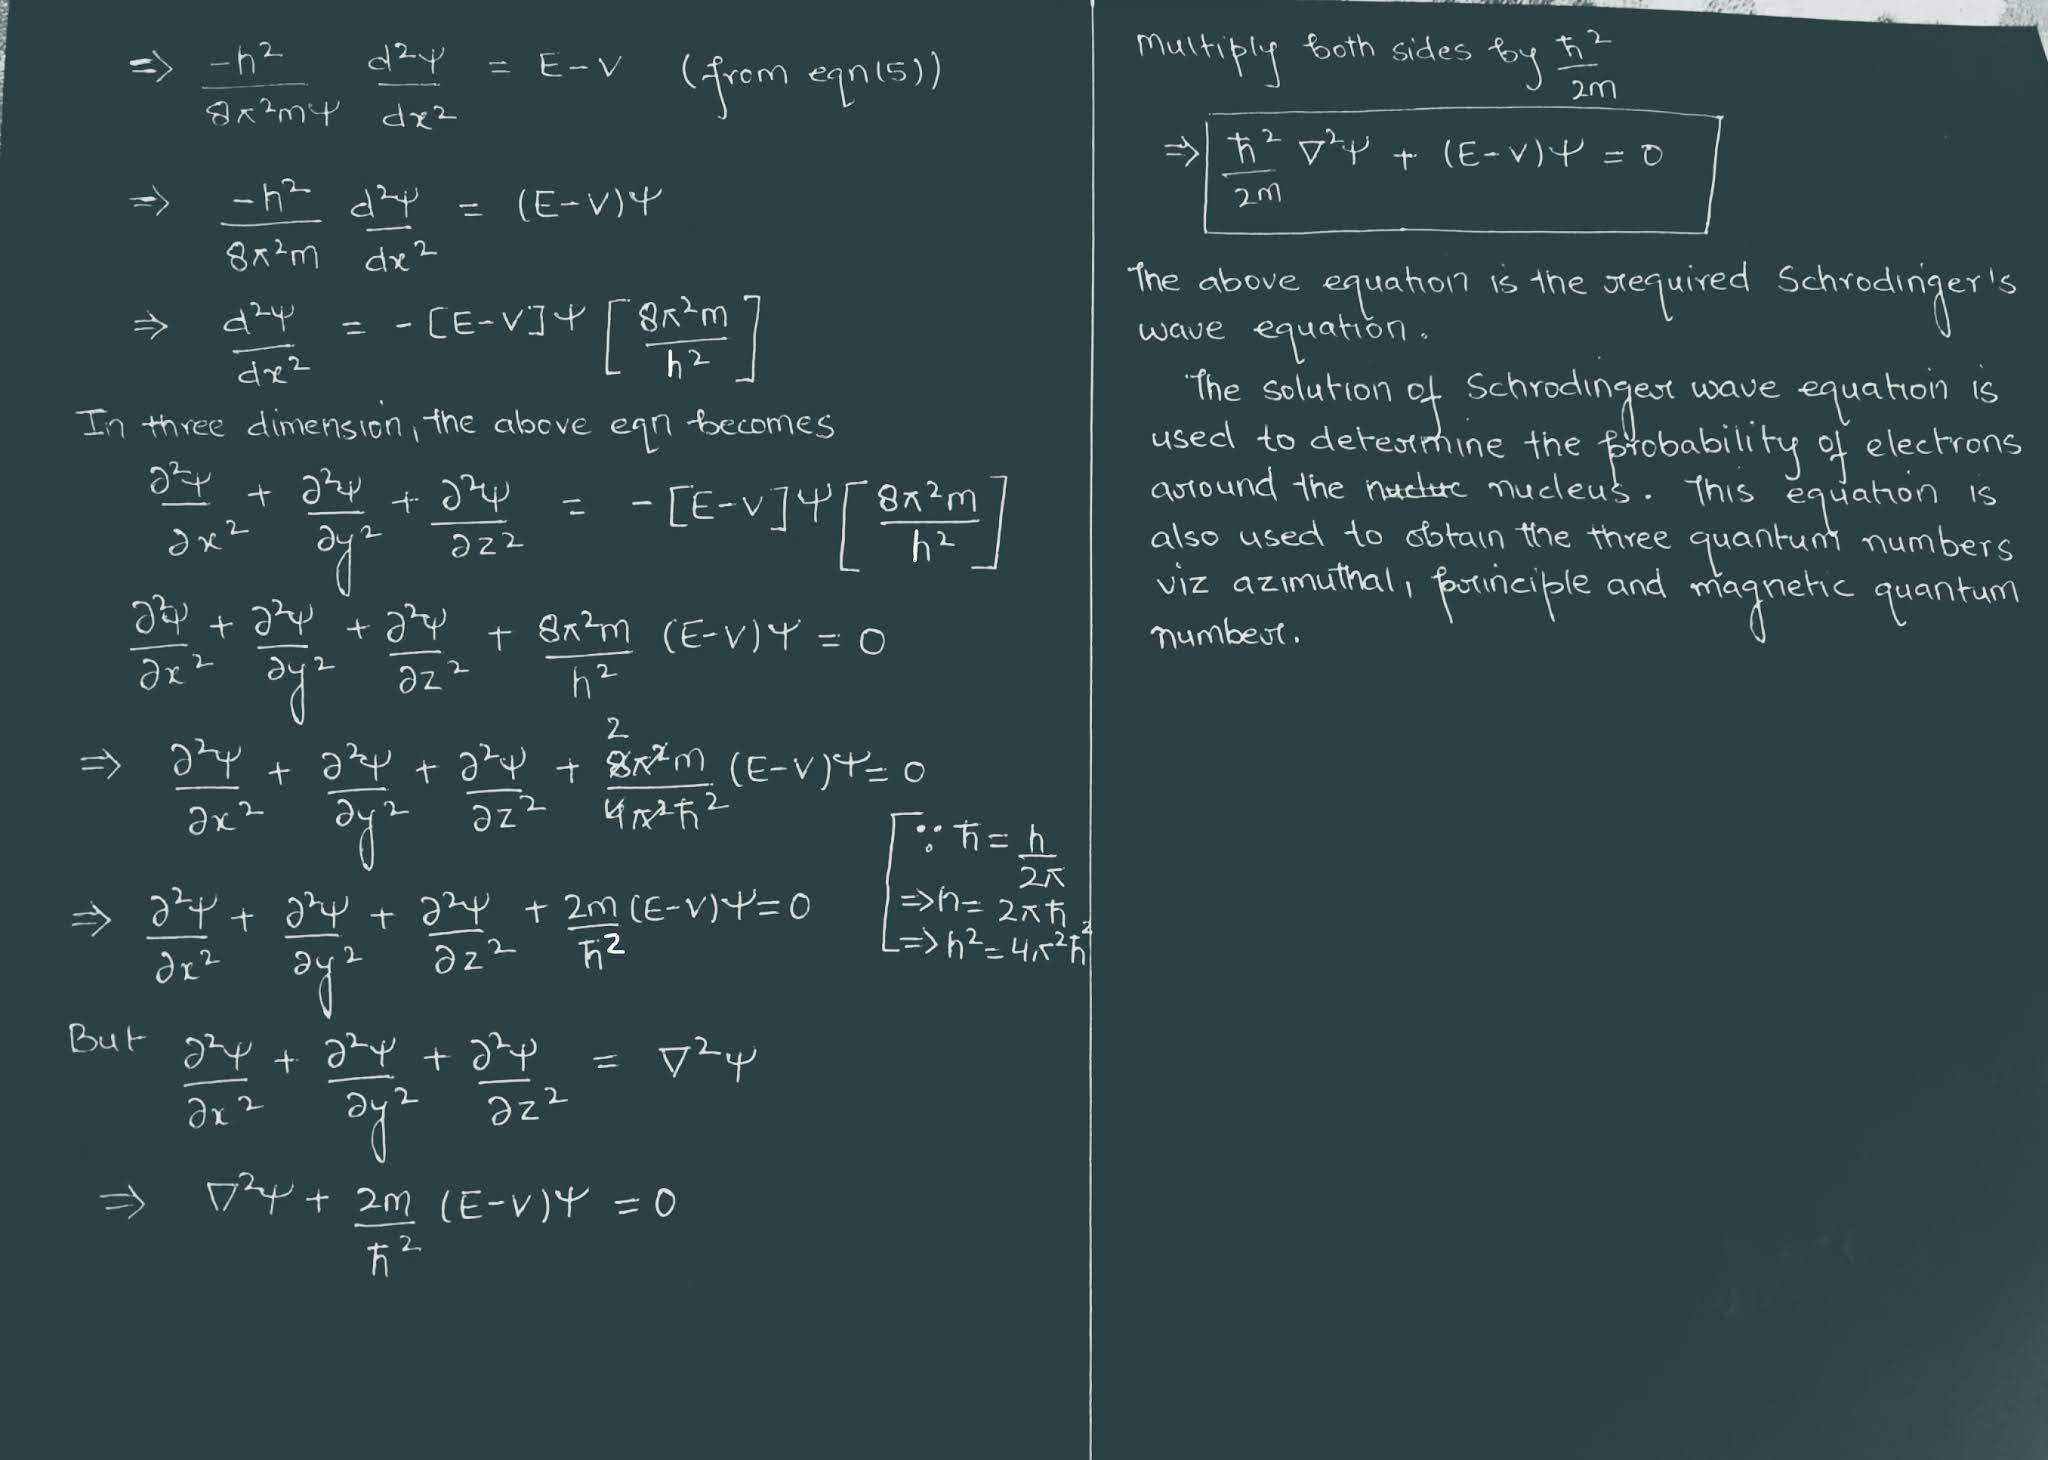 ⇒ -h²/8π²mψ d²ψ/dx² = E-V (from eqn(5))
⇒ -h²/8π²m d²ψ/dx² = (E-V)ψ
⇒ d²ψ/dx² = -[E-V]ψ [8π²m/h²]
In three dimension, the above eqn becomes
∂²ψ/∂x² + ∂²ψ/∂y² + ∂²ψ/∂z² = -[E-V]ψ[8π²m/h²]
∂²ψ/∂x² + ∂²ψ/∂y² + ∂²ψ/∂z² + 8π²m/h² (E-V)ψ = 0
2
⇒ ∂²ψ/∂x² + ∂²ψ/∂y² + ∂²ψ/∂z² + 8π²m/4π²ħ² (E-V)ψ = 0
[∵ ħ = h/2π
⇒ h = 2πħ
⇒ h² = 4π²ħ²
⇒ ∂²ψ/∂x² + ∂²ψ/∂y² + ∂²ψ/∂z² + 2m/ħ² (E-V)ψ = 0
But ∂²ψ/∂x² + ∂²ψ/∂y² + ∂²ψ/∂z² = ∇²ψ
⇒ ∇²ψ + 2m/ħ² (E-V)ψ = 0
Multiply both sides by ħ²/2m
⇒ ħ²/2m ∇²ψ + (E-V)ψ = 0
The above equation is the required Schrodinger's
wave equation.
The solution of Schrodinger wave equation is
used to determine the probability of electrons
around the nucleus. This equation is
also used to obtain the three quantum numbers
viz azimuthal, principle and magnetic quantum
number.